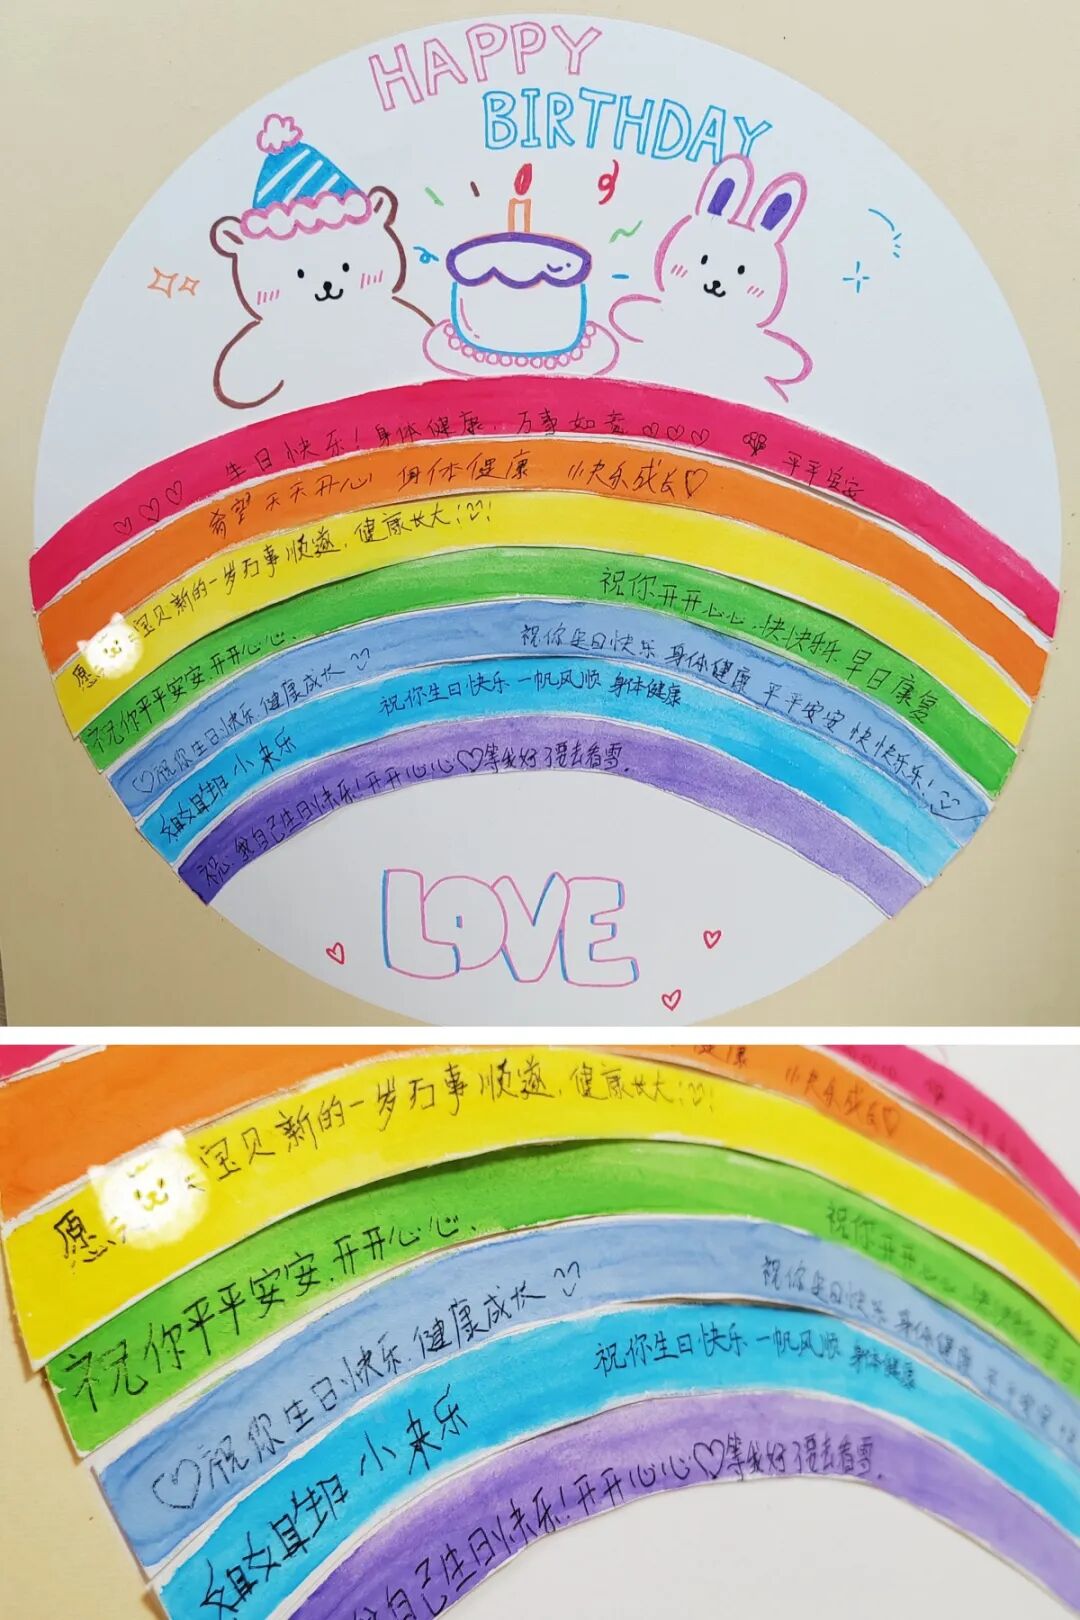 HAPPY
BIRTHDAY
生日快乐！身体健康，万事如意♡♡♡ 平平安安
希望天天开心 身体健康 快乐成长♡
愿 宝贝新的一岁万事顺遂，健康长大！♡！
祝你平平安安，开开心心、 祝你开开心心，快快乐乐 早日康复
♡祝你生日快乐，健康成长♡ 祝你生日快乐 身体健康 平平安安 快快乐乐！♡
小 乐 祝你生日快乐 一帆风顺 身体健康
祝：我自己生日快乐！开开心心♡等我好了要去看雪.
LOVE
健康 快乐成长♡
愿 宝贝新的一岁万事顺遂，健康长大！♡！
祝你平平安安，开开心心、 祝你开开心心
♡祝你生日快乐，健康成长♡ 祝你生日快乐 身体健康 平平安安
小 乐 祝你生日快乐 一帆风顺 身体健康
我自己生日快乐！开开心心♡等我好了要去看雪.